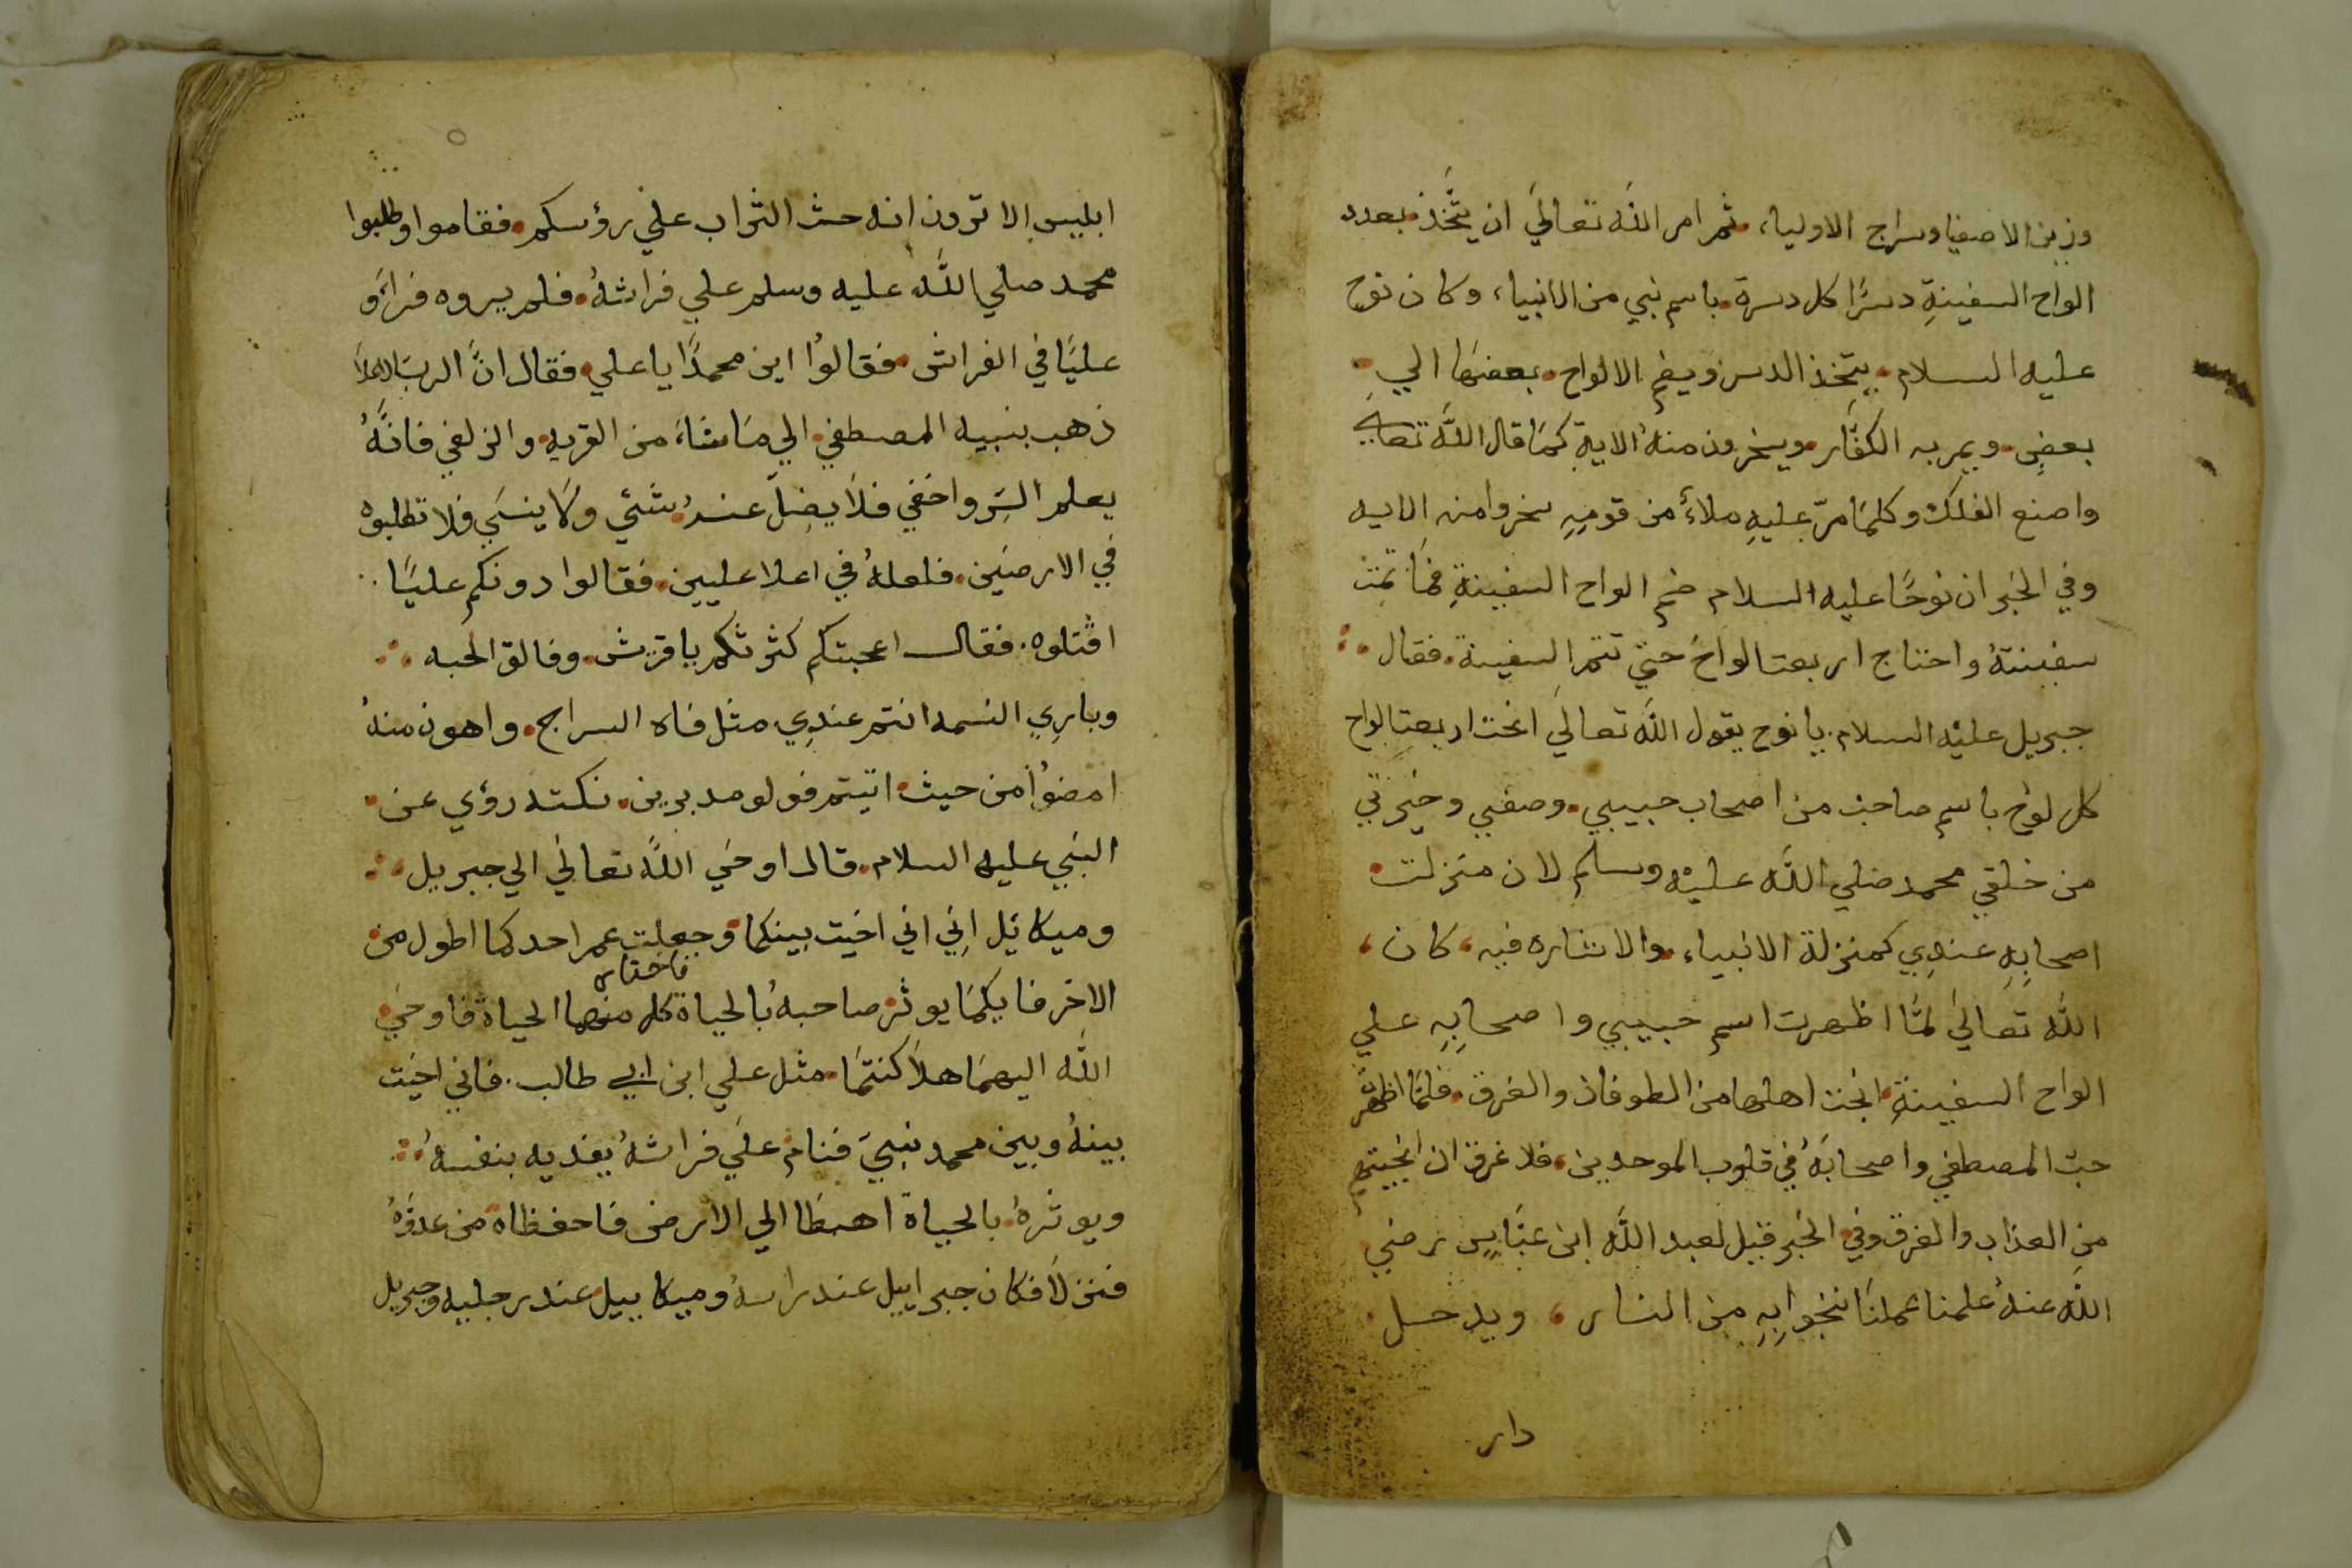 وزين الاصفيا وسراج الاولياء ثم امر الله تعالي ان يتخذ بعدد
الواح السفينةِ دسرًا كل دسرة باسم نبي من الانبياء وكان نوح
عليه السلام يتخذ الدسر ويضم الالواح بعضها الي
بعضِ ويمر به الكفّار ويسخرون منهُ الايةِ كمَا قال اللّه تعالي
واصنع الفلك وكلمَا مرّ عليهِ ملاءُ من قومِهِ سخروا منه الايه
وفي الخبر ان نوحًا عليه السلام ضم الواح السفينةِ فمَا تمت
سفينتهُ واحتاج اربعت الواح حتي تتم السفينة فقال
جبريل عليْه السلام يا نوح يقول اللّه تعالي انحت اربعت الواح
كل لوح باسم صاحبٍ من اصحاب حبيبي وصفيي وخيرتي
من خلقي محمد صلي اللّه عليْه وسلم لان منزلت
اصحابِهِ عندِي كمنزلة الانبياء والاشاره فيه كان
اللّه تعَالي لمَّا اظهرت اسم حبيبي واصحابِهِ علي
الواح السفينةِ انجت اهلها من الطوفان والغرق فلمَّا اظهر
حبّ المصطفي واصحابَهُ في قلوب الموحدين فلا غرق ان انجيتهم
من العذاب والغرق وفي الخبر قيل لعبد اللّه ابن عبّاسٍ رضي
اللّه عنهُ علمنا عملنا ننجوا بِهِ من النار ويدخل
دار
ابليس الا ترون انه حث التراب علي رؤسكم فقاموا وطلبوا
محمد صلي اللّه عليه وسلم علي فراشهُ فلم يروه فراؤ
عليًا في الفراش فقالوُا اين محمدًا يا علي فقال انَّ الربّ الاعلا
ذهب بنبيه المصطفي الي مَا شاءَ من القربه والزلفي فانَّهُ
يعلم السّر واخفي فلاَ يضِلّ عندهُ شئي ولا ينسَي فلا تطلبوه
في الارضيَن فلعلهُ في اعلا عليين فقالوا دونكم عليًا
اقتلوه فقال اعجبتكم كثرتكم يا قريش وفالق الحبه
وبارِي النسمه انتم عندِي مثل فاه السراج واهون منهُ
امضوُا من حيث اتيتم فولو مدبرين نكته رؤي عن
النبي عليه السلام قال اوحَي اللّه تعالي الي جبريل
وميكائيل اِنِي اني اخيت بينكما وجعلت عمر احدكما اطول من
الاخر فايكمَا يوثر صاحبهُ بالحياة فاختار كل منهما الحياة فاوحَي
اللّه اليهمَا هلاَ كنتمَا مثل علي ابن ابي طالب فاني اخيت
بينهُ وبين محمد نبييَ فنام علَي فراشهُ يفديه بنفسهُ
ويوثرهُ بالحياة اهبطَا الي الارض فاحفظاه من عدوّهُ
فنزلاَ فكان جبراييل عند راسهُ وميكاييل عند رجليه وجبريل